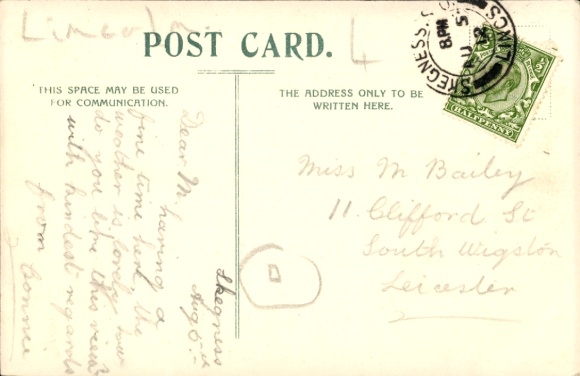 Lincoln
L
POST CARD.
THIS SPACE MAY BE USED
FOR COMMUNICATION.
THE ADDRESS ONLY TO BE
WRITTEN HERE.
SKEGNESS. S.O. LINCS
8.PM
AU 5
HALFPENNY
Skegness
Aug 5th
Dear M. having a
fine time here, the
weather is lovely, how
do you like this view?
with kindest regards
from Connie
Miss M Bailey
11. Clifford St
South Wigston
Leicester